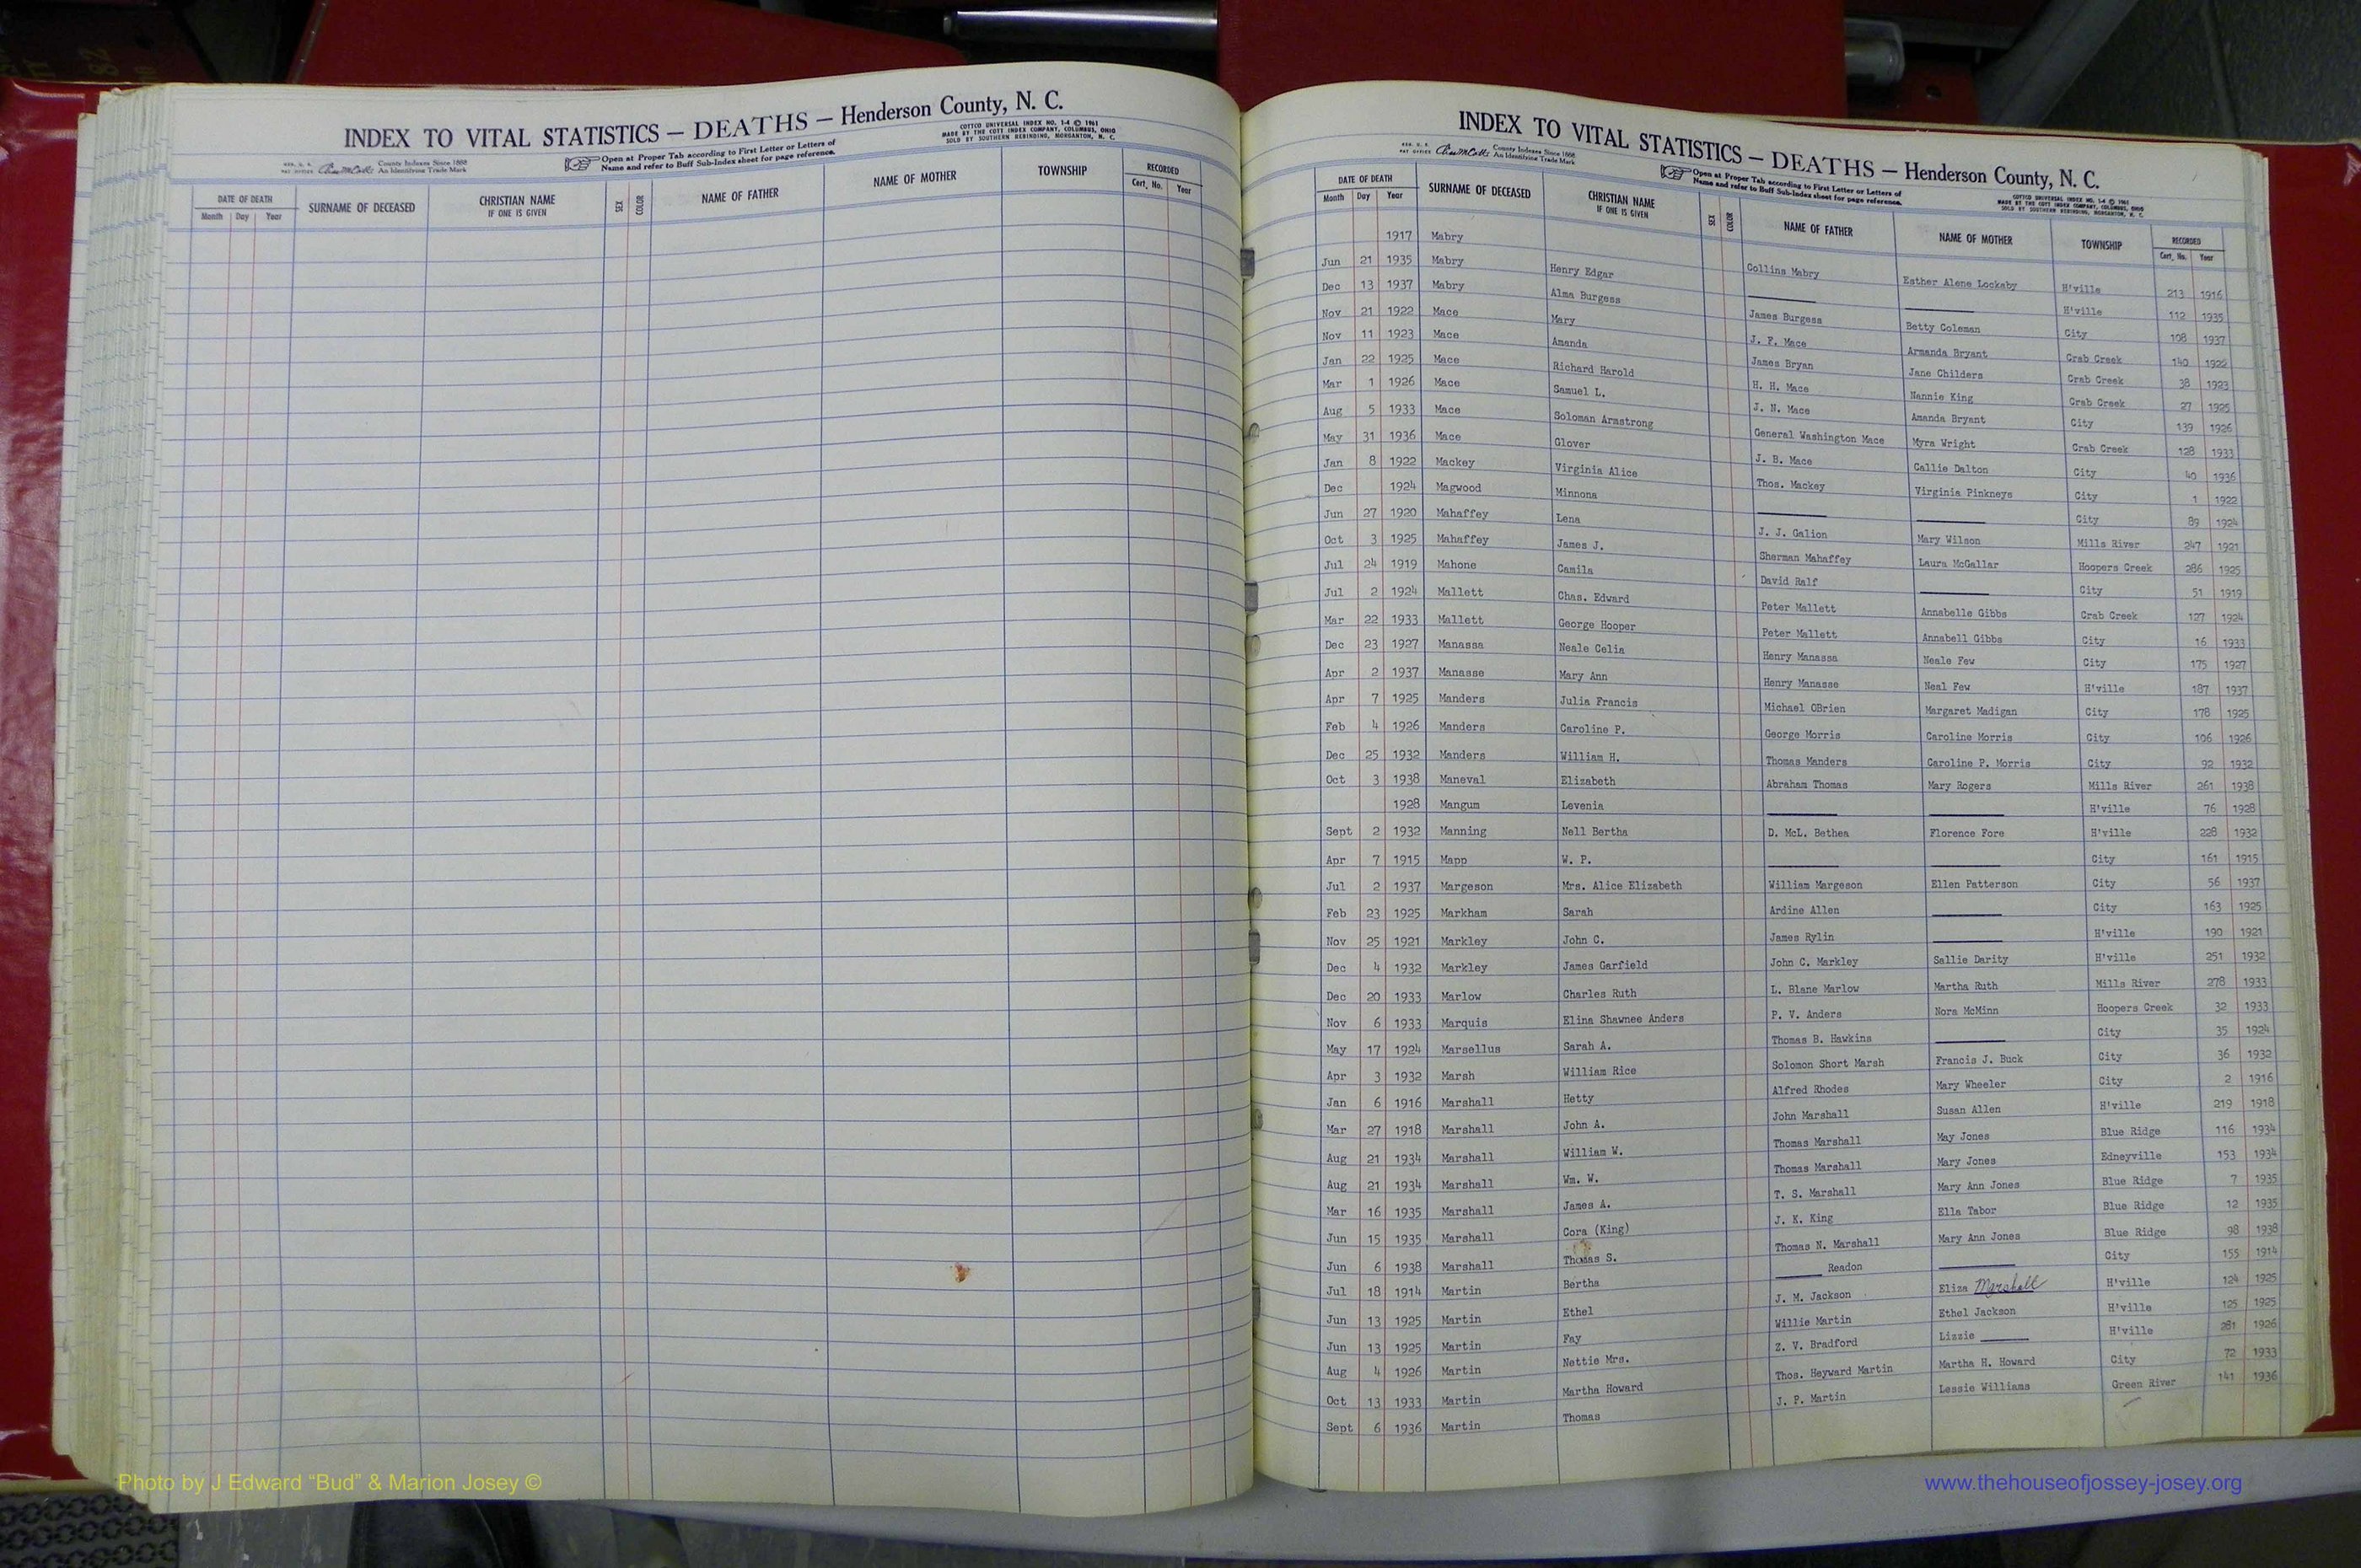 INDEX TO VITAL STATISTICS — DEATHS — Henderson County, N. C.
COTTCO UNIVERSAL INDEX NO. 1-4 © 1961
MADE BY THE COTT INDEX COMPANY, COLUMBUS, OHIO
SOLD BY SOUTHERN REBINDING, MORGANTON, N. C.
REG. U. S. PAT OFFICE County Indexes Since 1888
An Identifying Trade Mark
Open at Proper Tab according to First Letter or Letters of
Name and refer to Buff Sub-Index sheet for page reference.
DATE OF DEATH SURNAME OF DECEASED CHRISTIAN NAME IF ONE IS GIVEN SEX COLOR NAME OF FATHER NAME OF MOTHER TOWNSHIP RECORDED
Month Day Year Cert. No. Year
INDEX TO VITAL STATISTICS — DEATHS — Henderson County, N. C.
REG. U. S. PAT OFFICE County Indexes Since 1888
An Identifying Trade Mark
Open at Proper Tab according to First Letter or Letters of
Name and refer to Buff Sub-Index sheet for page reference.
COTTCO UNIVERSAL INDEX NO. 1-4 © 1961
MADE BY THE COTT INDEX COMPANY, COLUMBUS, OHIO
SOLD BY SOUTHERN REBINDING, MORGANTON, N. C.
DATE OF DEATH SURNAME OF DECEASED CHRISTIAN NAME IF ONE IS GIVEN SEX COLOR NAME OF FATHER NAME OF MOTHER TOWNSHIP RECORDED
Month Day Year Cert. No. Year
1917 Mabry Collins Mabry Esther Alene Lockaby H'ville 213 1916
Jun 21 1935 Mabry Henry Edgar H'ville 112 1935
Dec 13 1937 Mabry Alma Burgess James Burgess Betty Coleman City 108 1937
Nov 21 1922 Mace Mary J. F. Mace Armanda Bryant Crab Creek 140 1922
Nov 11 1923 Mace Amanda James Bryan Jane Childers Crab Creek 38 1923
Jan 22 1925 Mace Richard Harold H. H. Mace Nannie King Crab Creek 27 1925
Mar 1 1926 Mace Samuel L. J. N. Mace Amanda Bryant City 139 1926
Aug 5 1933 Mace Soloman Armstrong General Washington Mace Myra Wright Crab Creek 128 1933
May 31 1936 Mace Glover J. B. Mace Callie Dalton City 40 1936
Jan 8 1922 Mackey Virginia Alice Thos. Mackey Virginia Pinkneys City 1 1922
Dec 1924 Magwood Minnona City 89 1924
Jun 27 1920 Mahaffey Lena J. J. Galion Mary Wilson Mills River 247 1921
Oct 3 1925 Mahaffey James J. Sherman Mahaffey Laura McGallar Hoopers Creek 286 1925
Jul 24 1919 Mahone Camila David Ralf City 51 1919
Jul 2 1924 Mallett Chas. Edward Peter Mallett Annabelle Gibbs Crab Creek 127 1924
Mar 22 1933 Mallett George Hooper Peter Mallett Annabell Gibbs City 16 1933
Dec 23 1927 Manassa Neale Celia Henry Manassa Neale Few City 175 1927
Apr 2 1937 Manasse Mary Ann Henry Manasse Neal Few H'ville 187 1937
Apr 7 1925 Manders Julia Francis Michael OBrien Margaret Madigan City 178 1925
Feb 4 1926 Manders Caroline P. George Morris Caroline Morris City 106 1926
Dec 25 1932 Manders William H. Thomas Manders Caroline P. Morris City 92 1932
Oct 3 1938 Maneval Elizabeth Abraham Thomas Mary Rogers Mills River 261 1938
1928 Mangum Levenia H'ville 76 1928
Sept 2 1932 Manning Nell Bertha D. McL. Bethea Florence Fore H'ville 228 1932
Apr 7 1915 Mapp W. P. City 161 1915
Jul 2 1937 Margeson Mrs. Alice Elizabeth William Margeson Ellen Patterson City 56 1937
Feb 23 1925 Markham Sarah Ardine Allen City 163 1925
Nov 25 1921 Markley John C. James Rylin H'ville 190 1921
Dec 4 1932 Markley James Garfield John C. Markley Sallie Darity H'ville 251 1932
Dec 20 1933 Marlow Charles Ruth L. Blane Marlow Martha Ruth Mills River 278 1933
Nov 6 1933 Marquis Elina Shawnee Anders P. V. Anders Nora McMinn Hoopers Creek 32 1933
May 17 1924 Marsellus Sarah A. Thomas B. Hawkins City 35 1924
Apr 3 1932 Marsh William Rice Solomon Short Marsh Francis J. Buck City 36 1932
Jan 6 1916 Marshall Hetty Alfred Rhodes Mary Wheeler City 2 1916
Mar 27 1918 Marshall John A. John Marshall Susan Allen H'ville 219 1918
Aug 21 1934 Marshall William W. Thomas Marshall May Jones Blue Ridge 116 1934
Aug 21 1934 Marshall Wm. W. Thomas Marshall Mary Jones Edneyville 153 1934
Mar 16 1935 Marshall James A. T. S. Marshall Mary Ann Jones Blue Ridge 7 1935
Jun 15 1935 Marshall Cora (King) J. K. King Ella Tabor Blue Ridge 12 1935
Jun 6 1938 Marshall Thomas S. Thomas N. Marshall Mary Ann Jones Blue Ridge 98 1938
Jul 18 1914 Martin Bertha Readon City 155 1914
Jun 13 1925 Martin Ethel J. M. Jackson Eliza Marshall H'ville 124 1925
Jun 13 1925 Martin Fay Willie Martin Ethel Jackson H'ville 125 1925
Aug 4 1926 Martin Nettie Mrs. Z. V. Bradford Lizzie H'ville 281 1926
Oct 13 1933 Martin Martha Howard Thos. Heyward Martin Martha H. Howard City 72 1933
Sept 6 1936 Martin Thomas J. P. Martin Lessie Williams Green River 141 1936
Photo by J Edward “Bud” & Marion Josey ©
www.thehouseofjossey-josey.org